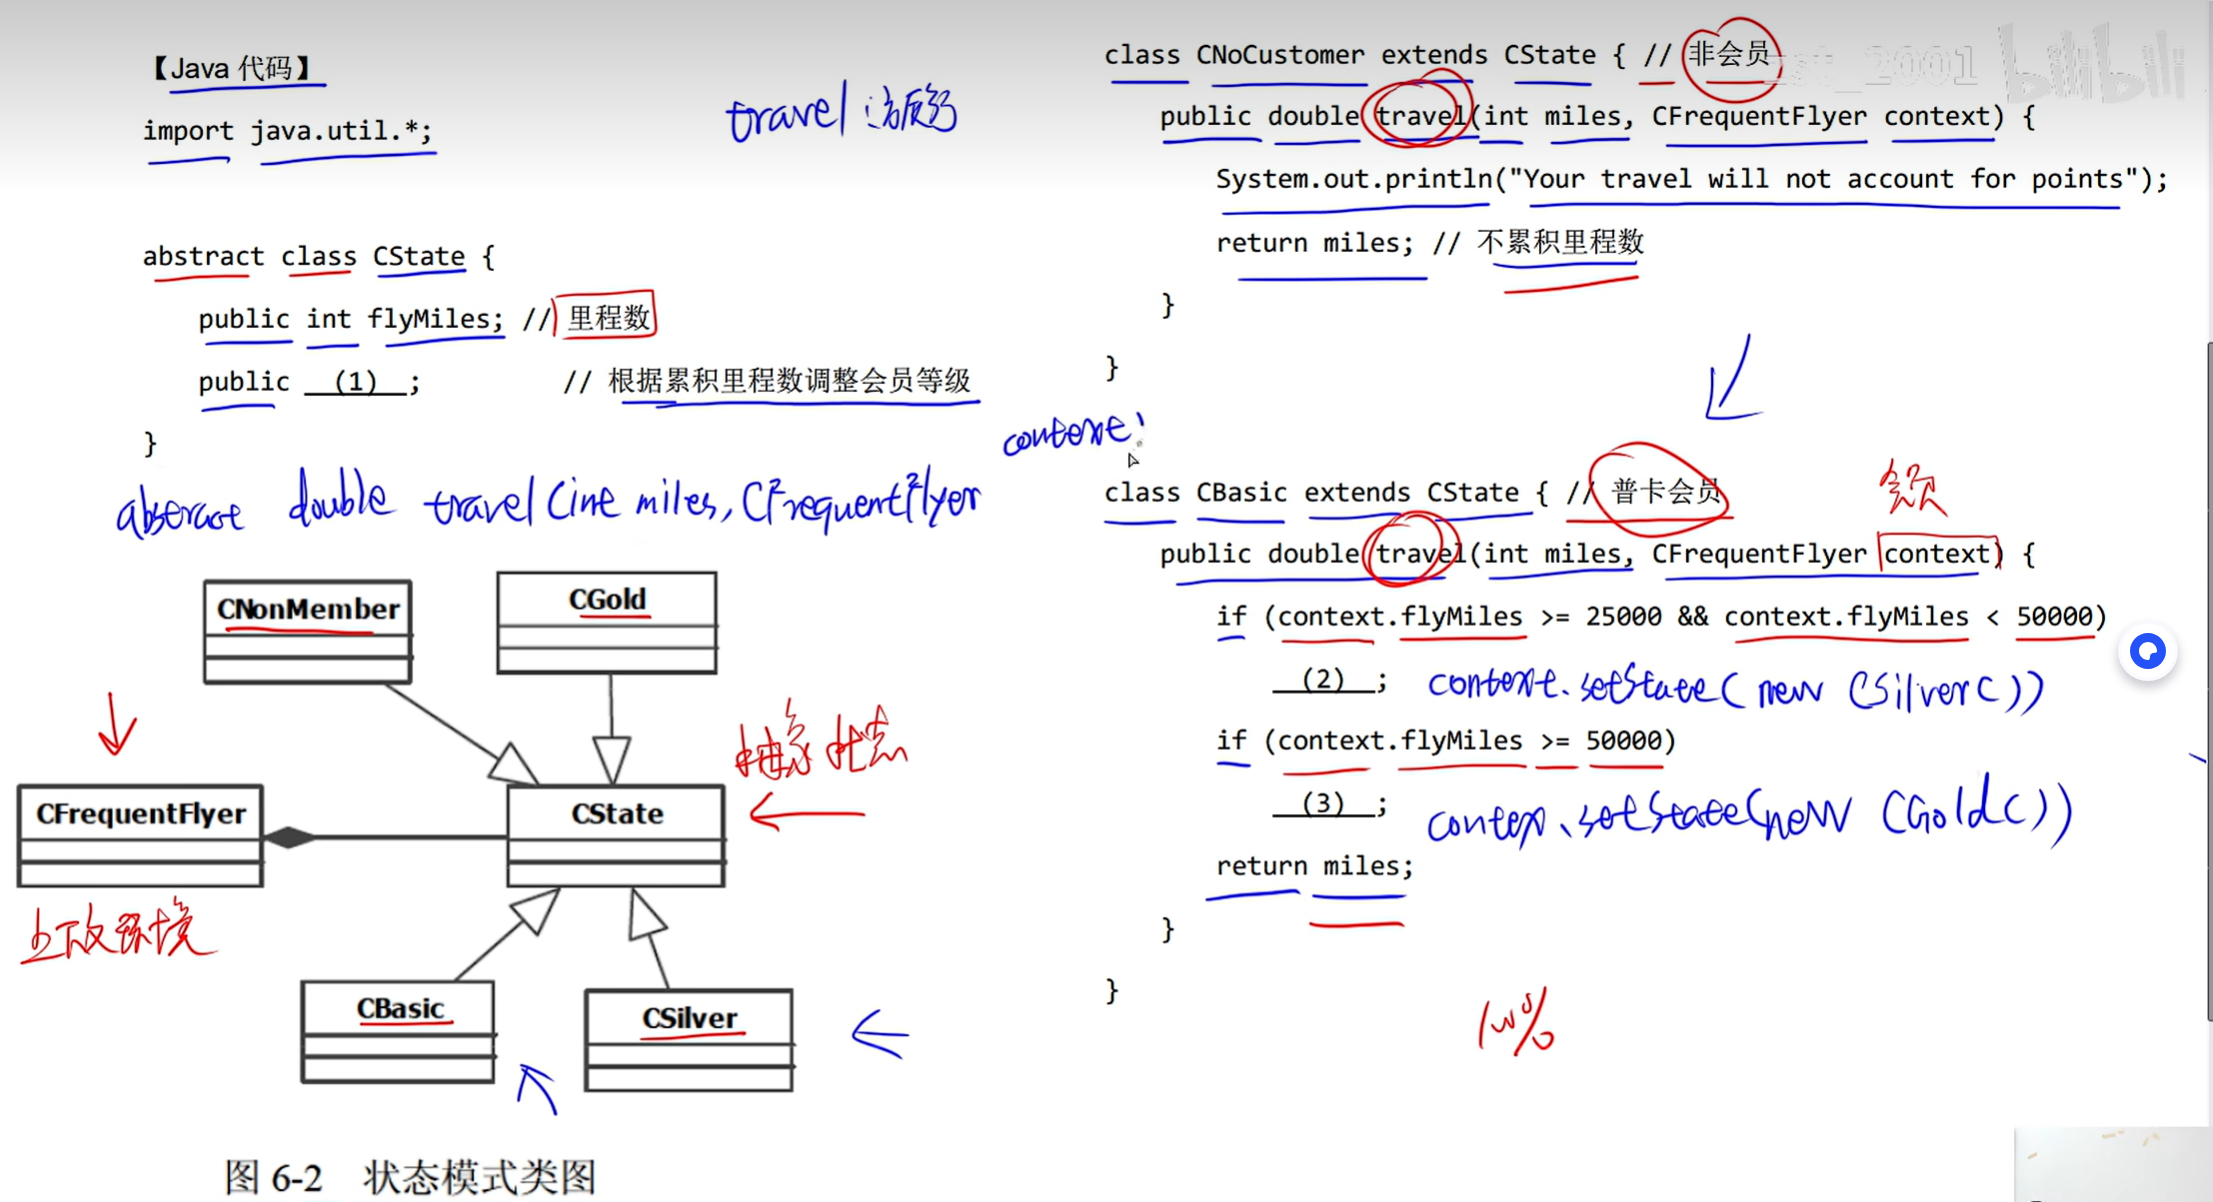 【Java 代码】
import java.util.*;
travel
abstract class CState {
public int flyMiles; // 里程数
public (1) ; // 根据累积里程数调整会员等级
}
abstract double travel(int miles, CFrequentFlyer
context)
CNonMember
CGold
CFrequentFlyer
CState
抽象状态
上下文环境
CBasic
CSilver
图 6-2 状态模式类图
class CNoCustomer extends CState { // 非会员
public double travel(int miles, CFrequentFlyer context) {
System.out.println("Your travel will not account for points");
return miles; // 不累积里程数
}
}
class CBasic extends CState { // 普卡会员
public double travel(int miles, CFrequentFlyer context) {
if (context.flyMiles >= 25000 && context.flyMiles < 50000)
(2) ; context.setState(new CSilver())
if (context.flyMiles >= 50000)
(3) ; contex.setState(new CGold())
return miles;
}
}
bilibili